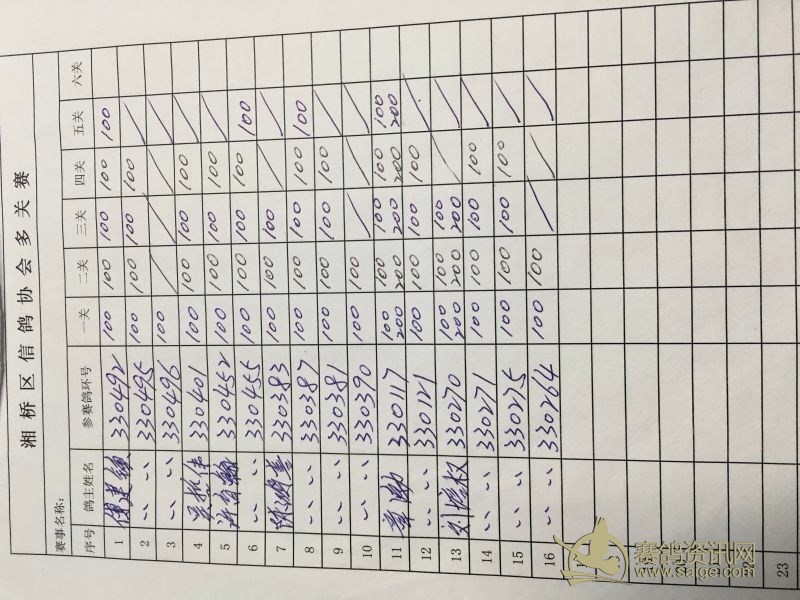 湘桥区信鸽协会多关赛
赛事名称：
序号 鸽主姓名 参赛鸽环号 一关 二关 三关 四关 五关 六关
1 330492 100 100 100 100 100
2 〃 330495 100 100 100 100 /
3 〃 330496 100 / / / /
4 330401 100 100 100 100 /
5 330452 100 100 100 100 /
6 〃 330455 100 100 100 100 100
7 330383 100 100 100 / /
8 〃 330387 100 100 100 100 100
9 〃 330381 100 100 100 100 /
10 〃 330390 100 100 / / /
11 330117 100 200 100 200 100 200 100 200 100 200
12 〃 330121 100 100 100 100 /
13 刘培权 330270 100 200 100 200 100 200 / /
14 〃 330271 100 100 100 100 /
15 〃 330275 100 100 100 100 /
16 〃 330264 100 100 / / /
22
23
赛鸽资讯网
www.saige.com